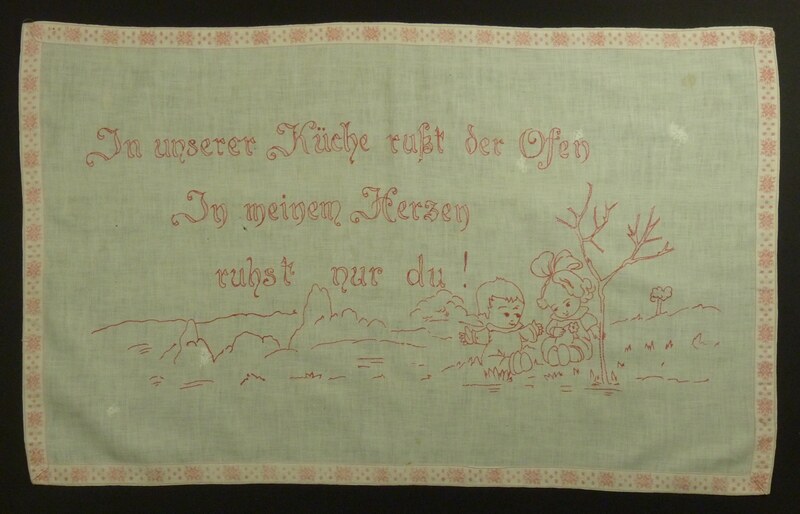 In unserer Küche rußt der Ofen
In meinem Herzen
ruhst nur du!